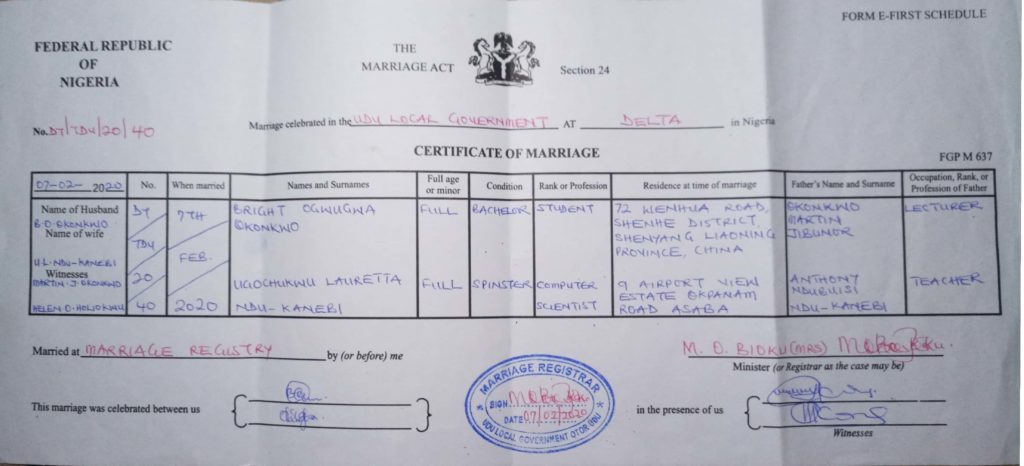 FORM E-FIRST SCHEDULE
FEDERAL REPUBLIC
OF
NIGERIA
THE
MARRIAGE ACT
Section 24
No. DT/TDU/20/40
Marriage celebrated in the UDU LOCAL GOVERNMENT AT DELTA in Nigeria
CERTIFICATE OF MARRIAGE
FGP M 637
07-02- 2020 No. When married Names and Surnames Full age or minor Condition Rank or Profession Residence at time of marriage Father's Name and Surname Occupation, Rank, or Profession of Father
Name of Husband DT 7TH BRIGHT OGWUGWA FULL BACHELOR STUDENT 72 WENHUA ROAD, OKONKWO LECTURER
B.O. OKONKWO OKONKWO SHENHE DISTRICT MARTIN
Name of wife TDU SHENYANG LIAONING JIBUNOR
U.L. NDU-KANEBI FEB. PROVINCE, CHINA
Witnesses
MARTIN. J. OKONKWO 20 UGOCHUKWU LAURETTA FULL SPINSTER COMPUTER 9 AIRPORT VIEW ANTHONY TEACHER
SCIENTIST ESTATE OKPANAM NDUBUISI
HELEN O. 40 2020 NDU-KANEBI ROAD ASABA NDU-KANEBI
Married at MARRIAGE REGISTRY by (or before) me
M. O. BIOKU (MRS)
Minister (or Registrar as the case may be)
This marriage was celebrated between us
MARRIAGE REGISTRAR
SIGN
DATE 07/02/2020
UDU LOCAL GOVERNMENT OTOR-UDU
in the presence of us
Witnesses